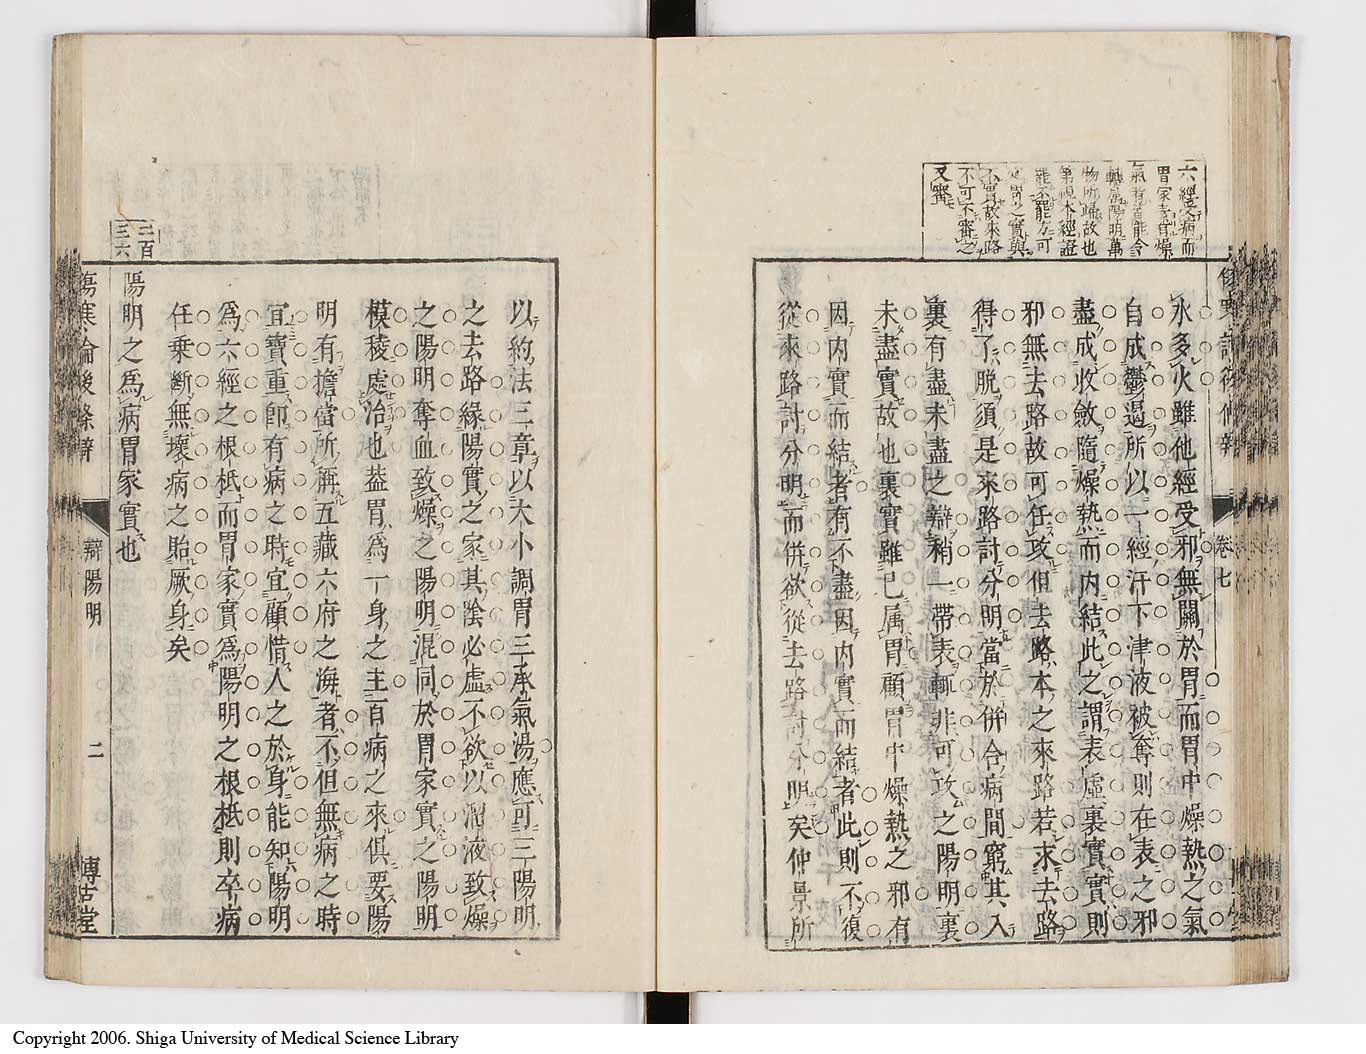 六經受病而
胃家素有燥
氣者皆能令
轉屬陽明萬
物所歸故也
第視本經證
罷不罷方可
定胃之實與
不實故來路
不可不審之
又審
卷七
水多火雖他經受邪無關於胃而胃中燥熱之氣
自成鬱遏所以一經汗下津液被奪則在表之邪
盡成收斂隨燥熱而内結此之謂表虛裏實實則
邪無去路故可任攻但去路本之來路若求去路
得了脱須是來路討分明當於併合病間窮其入
裏有盡未盡之辯稍一帶表輒非可攻之陽明裏
未盡實故也裏實雖已属胃顧胃中燥熱之邪有
因内實而結者有不盡因内實而結者此則不復
從來路討分明而併欲從去路討分明矣仲景所
以約法三章以大小調胃三承氣湯應可三陽明
之去路緣陽實之家其陰必虛不欲以溜液致燥
之陽明奪血致燥之陽明混同於胃家實之陽明
模稜處治也葢胃爲一身之主百病之來俱要陽
明有擔當所稱五藏六府之海者不但無病之時
宜寶重卽有病之時宜顧惜人之於身能知陽明
爲六經之根柢而胃家實爲陽明之根柢則卒病
任乘斷無壞病之貽厥身矣
二百
三六
陽明之爲病胃家實也
傷寒論後條辯
辯陽明
二
博古堂